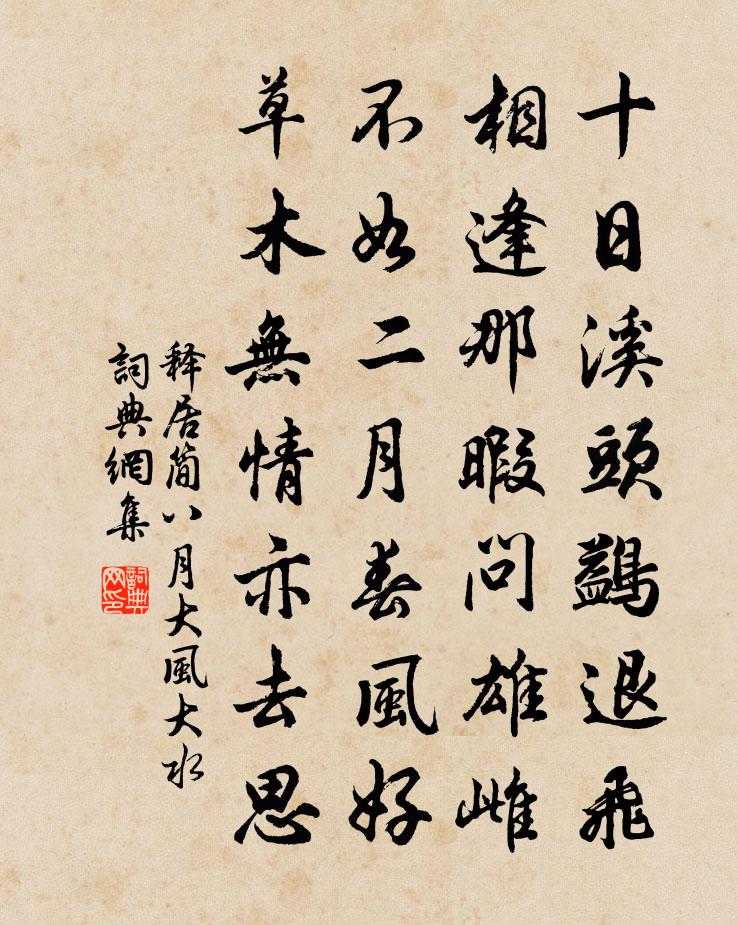 十日溪頭鷁退飛
相逢那暇問雄雌
不如二月春風好
草木無情亦去思
释居简八月大風大水
詞典網集
詞典网印